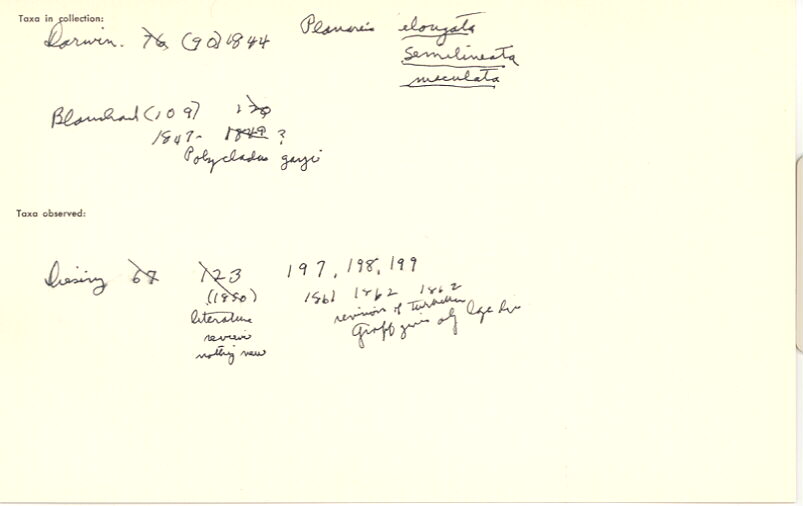 Taxa in collection:
Darwin. 76 (90) 1844 Planaria elongata
semilineata
maculata
Blanchard (109) 120
1847- 1849 ?
Polycladus gayi
Taxa observed:
Diesing 67 123 197, 198, 199
(1850) 1861 1862 1862
literature revision of
review Graff gives
nothing new